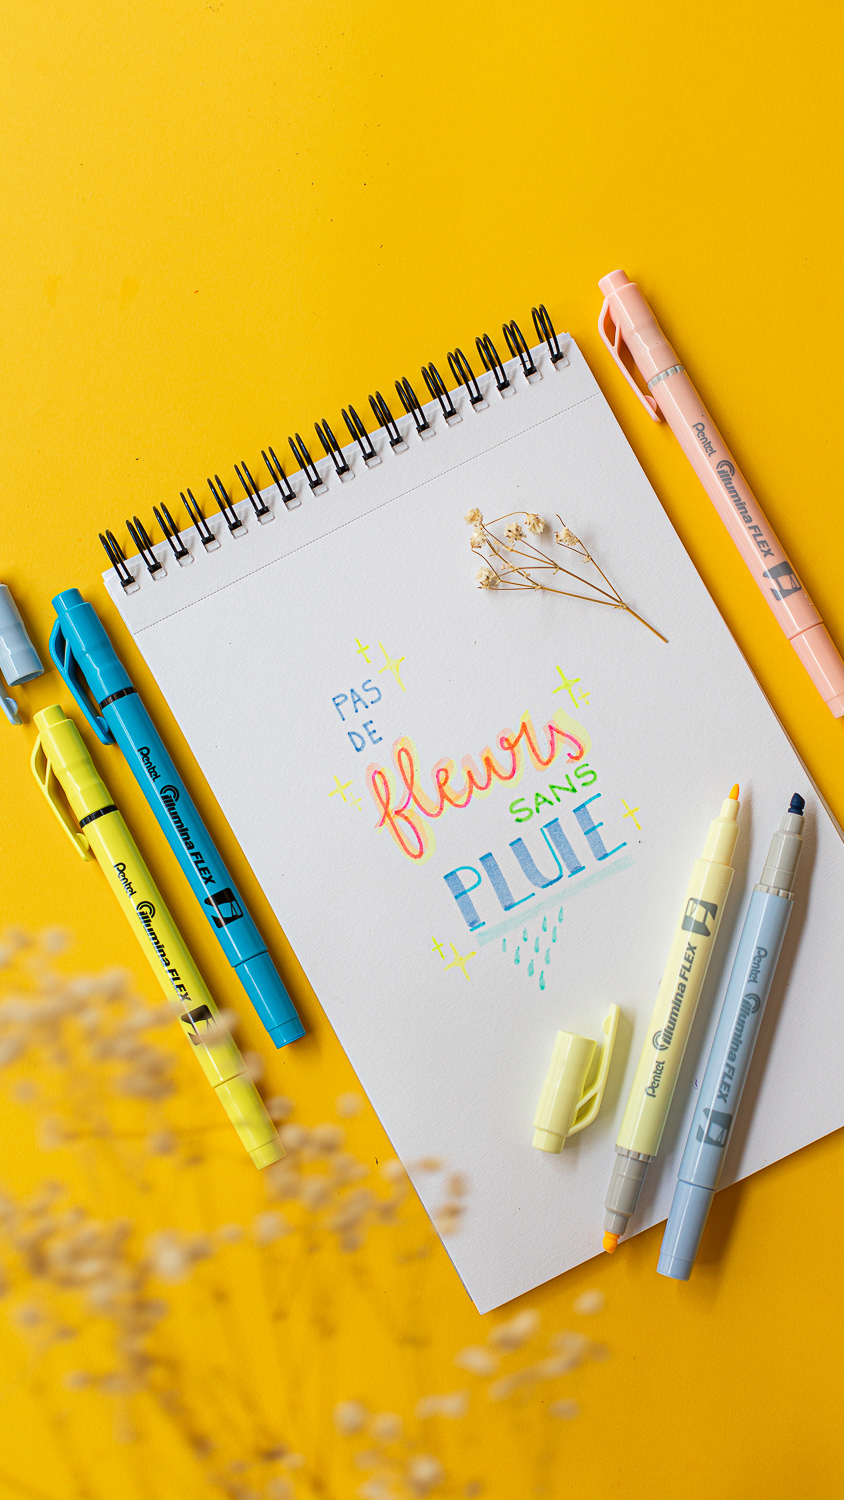 PAS
DE
fleurs
SANS
PLUIE
Pentel illumina FLEX
Pentel illumina FLEX
Pentel illumina FLEX
Pentel illumina FLEX
Pentel illumina FLEX